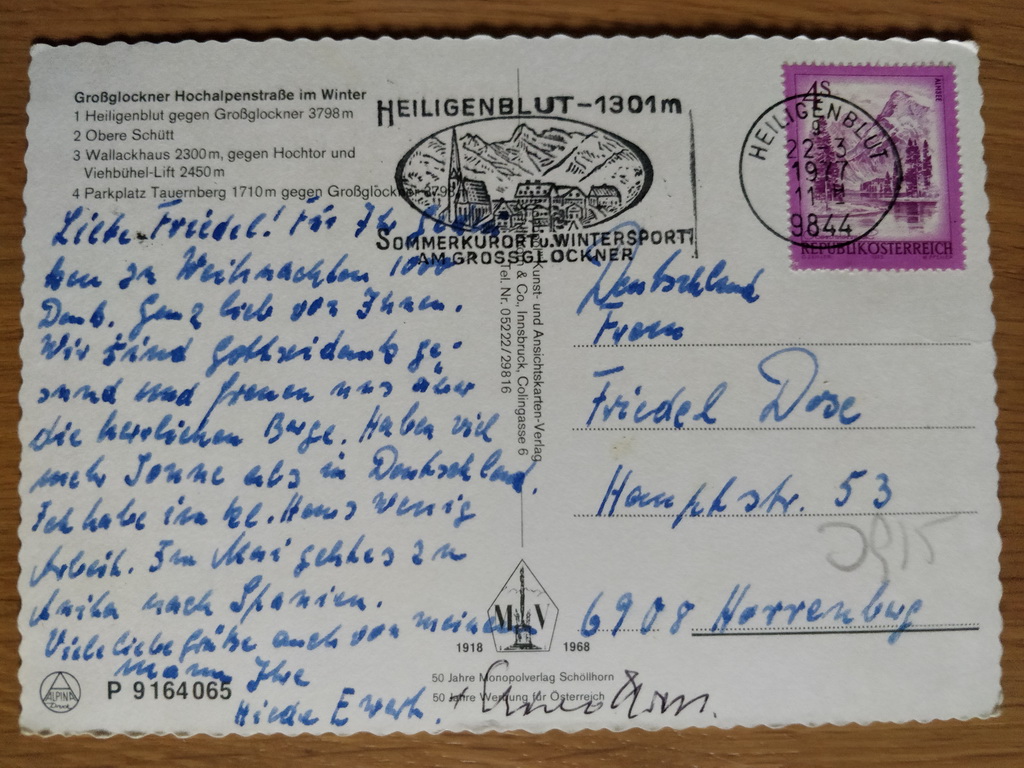 Großglockner Hochalpenstraße im Winter
1 Heiligenblut gegen Großglockner 3798 m
2 Obere Schütt
3 Wallackhaus 2300 m, gegen Hochtor und
Viehbühel-Lift 2450 m
4 Parkplatz Tauernberg 1710 m gegen Großglockner 3798 m
HEILIGENBLUT-1301m
SOMMERKURORT u. WINTERSPORT
AM GROSSGLOCKNER
HEILIGENBLUT
22.3.
1977
11
9844
4S
ALMSEE
REPUBLIK ÖSTERREICH
Liebe Friedel! Für Ihr
ken zu Weihnachten 1000
Dank. Ganz lieb von Ihnen.
Wir sind Gottseidank ge-
sund und freuen uns über
die herrlichen Berge. Haben viel
mehr Sonne als in Deutschland.
Ich habe im kl. Haus wenig
Arbeit. Im Mai geht es zu
Anita nach Spanien.
Viele liebe Grüße auch von meinem
Mann Ihre
Ewert.
Kunst- und Ansichtskarten-Verlag
& Co., Innsbruck, Colingasse 6
Tel. Nr. 05222/29816
Deutschland
Frau
Friedel Dose
Hauptstr. 53
6908 Horrenberg
3915
M V
1918 1968
50 Jahre Monopolverlag Schöllhorn
50 Jahre Werbung für Österreich
ALPINA
Druck
P 9164065